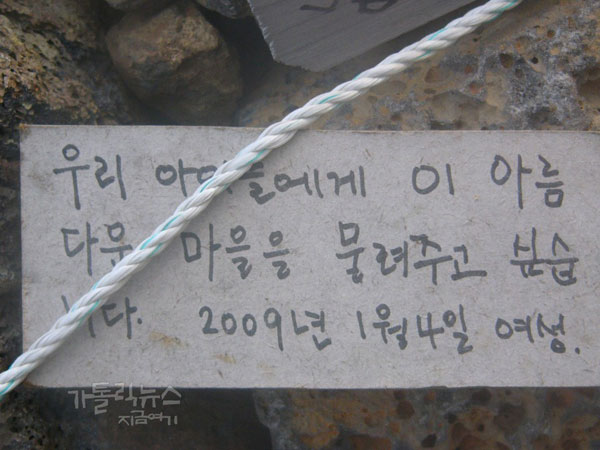 우리 아이들에게 이 아름
다운 마을을 물려주고 싶습
니다. 2009년 1월 4일 여성.
가톨릭뉴스
지금여기